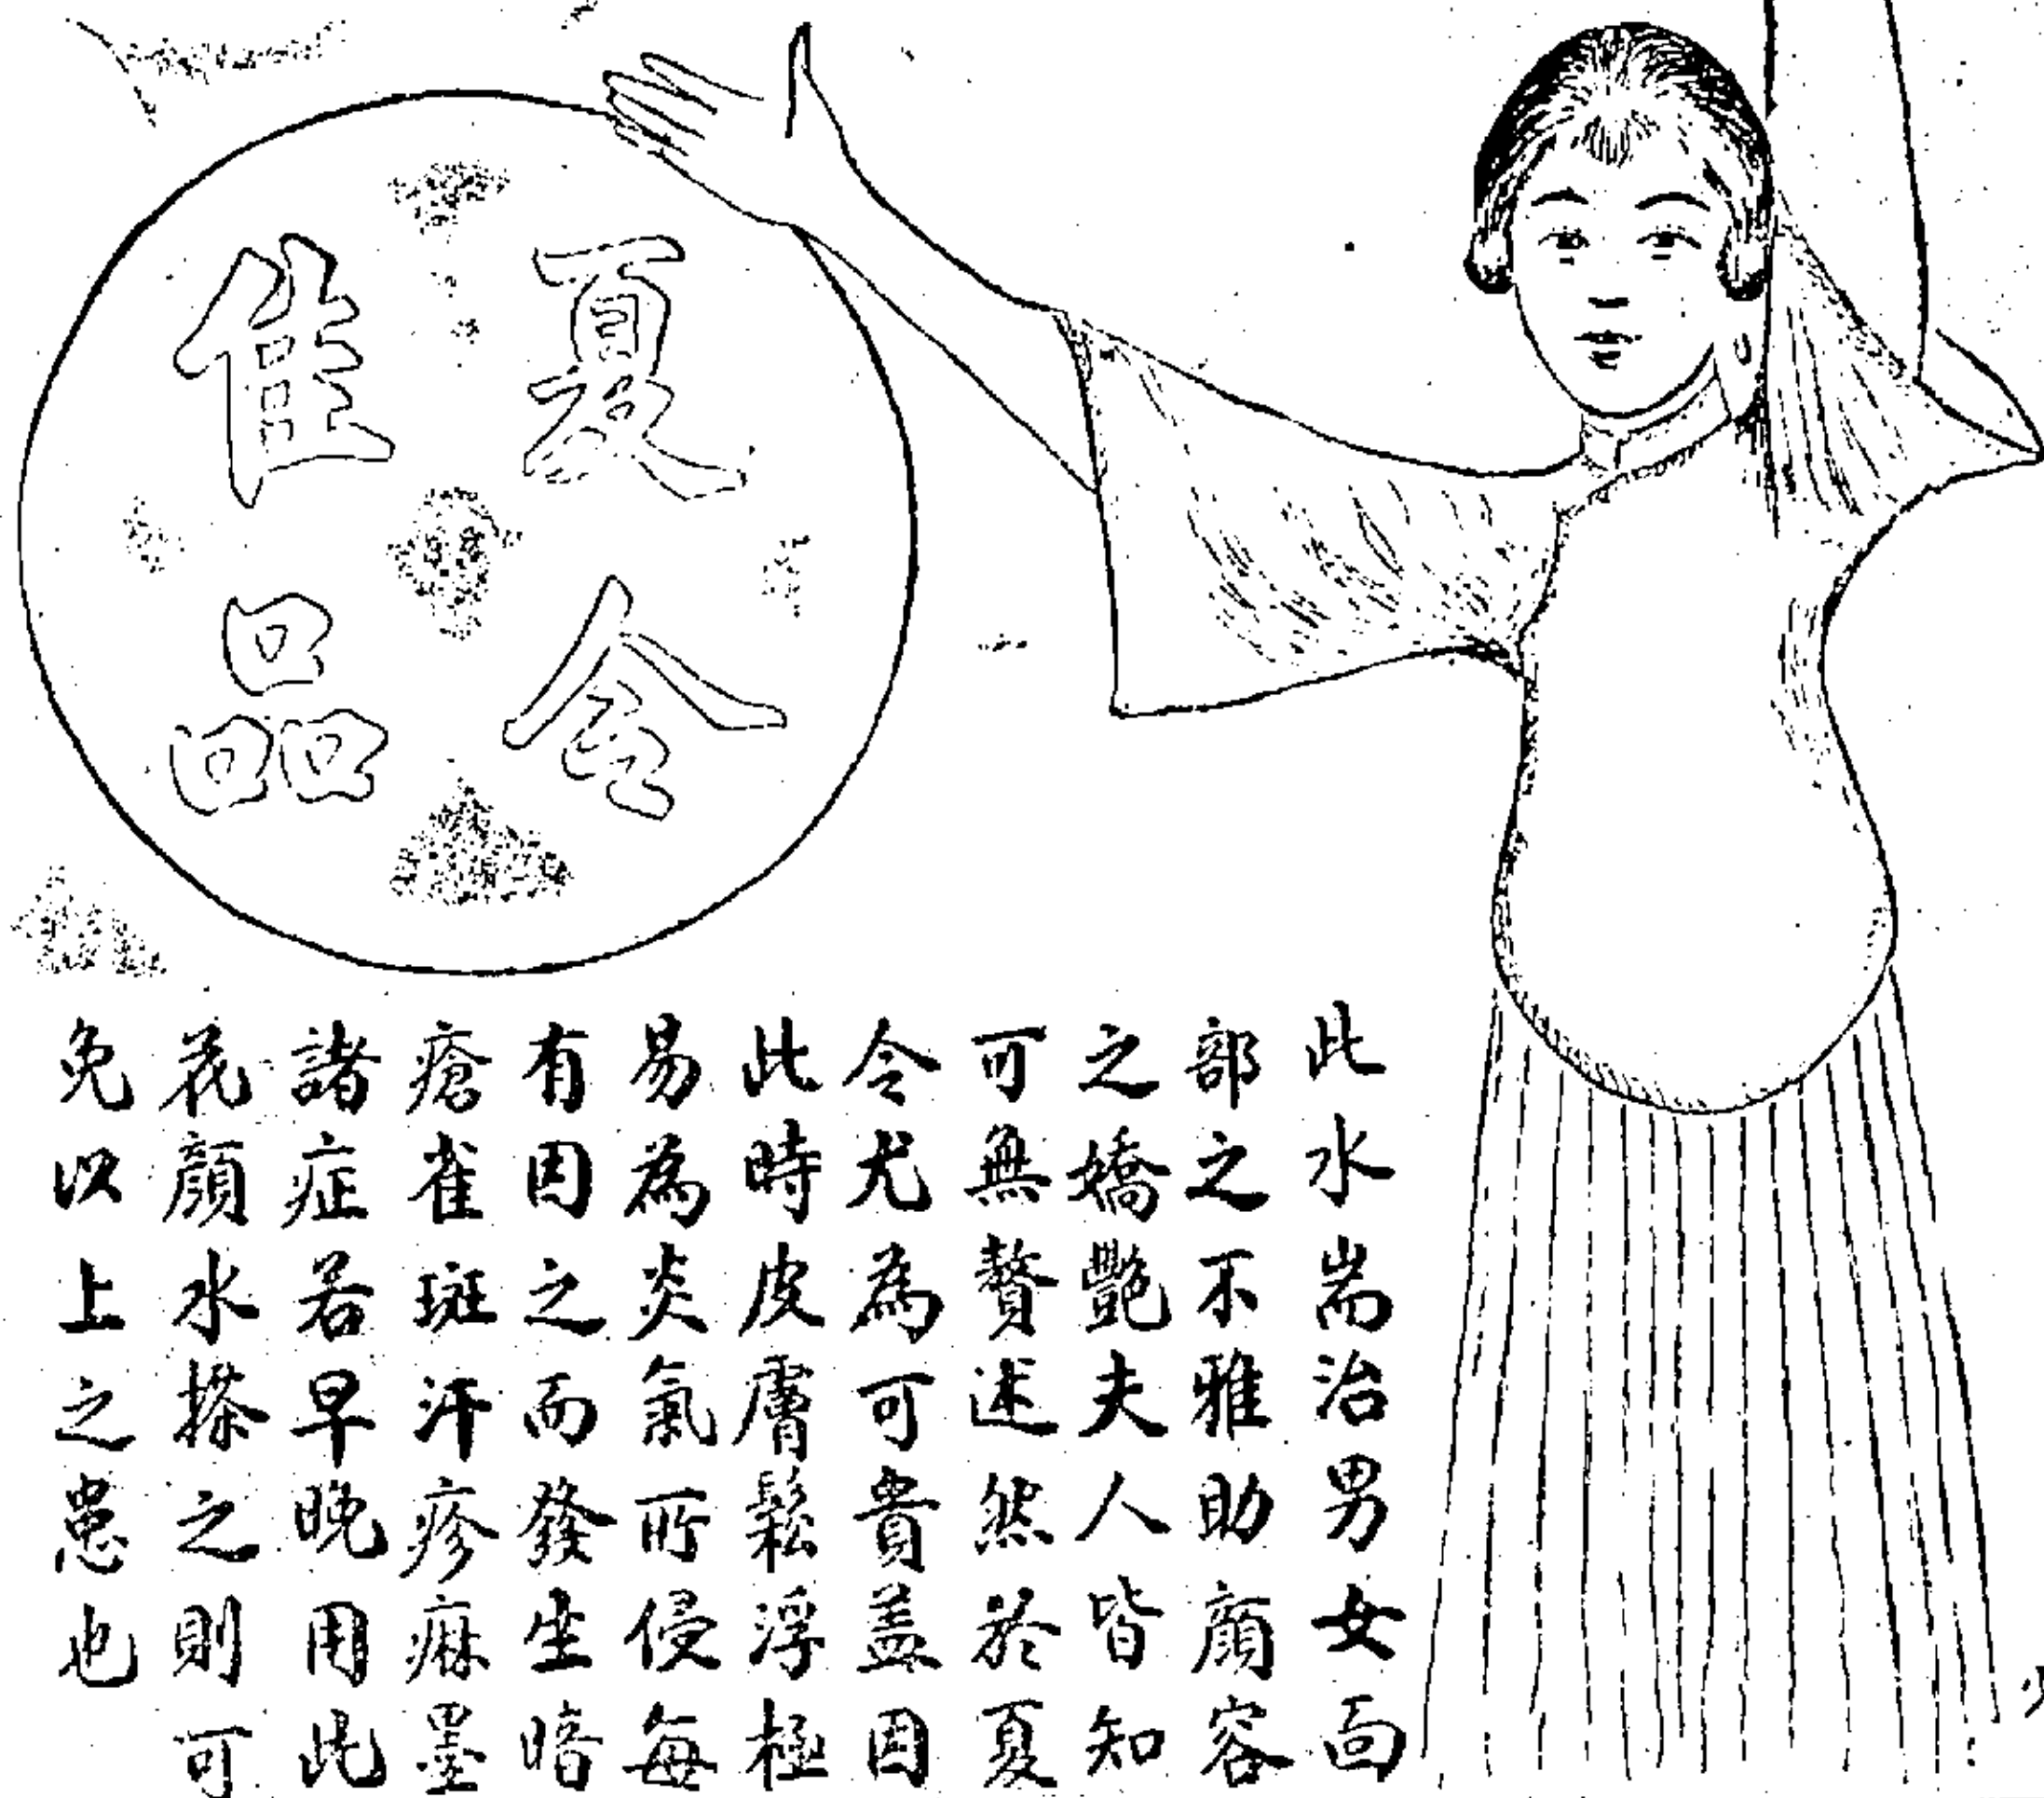 夏令
佳品
此水耑治男女面
部之不雅助顏容
之嬌艷夫人皆知
可無贅述然於夏
令尤為可貴盖因
此時皮膚鬆浮極
易為炎氣所侵每
有因之而發生暗
瘡雀斑汗疹痳墨
諸症若早晚用此
花顏水搽之則可
免以上之患也